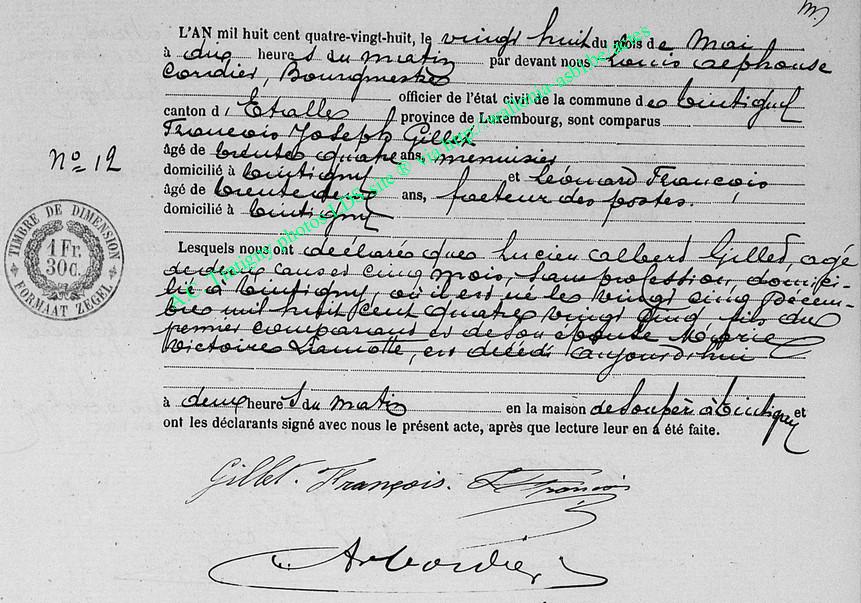 L'AN mil huit cent quatre-vingt-huit, le vingt huit du mois de Mai
à dix heures du matin par devant nous Louis Alphonse
Cordier, Bourgmestre
officier de l'état civil de la commune de Tintigny
canton d'Etalle province de Luxembourg, sont comparus
François Joseph Gillet
âgé de trente quatre ans, menuisier
domicilié à Tintigny et Léonard François
âgé de trente deux ans, facteur des postes.
domicilié à Tintigny
Lesquels nous ont déclaré que Lucien Albert Gillet, agé
de deux ans et cinq mois, sans profession, domici-
lié à Tintigny, où il est né le vingt cinq Décem-
bre mil huit cent quatre vingt cinq fils du
premier comparant et de son épouse Marie
Victoire Lamotte, est décédé aujourd'hui
à deux heures du matin en la maison de son père à Tintigny et
ont les déclarants signé avec nous le présent acte, après que lecture leur en a été faite.
Gillet François. L. François
A. Cordier
No 12
TIMBRE DE DIMENSION
1 Fr.
30 C.
FORMAAT ZEGEL
A.C. Tintigny photos LDS, site ® via http://wallonia-asbl.be/actes